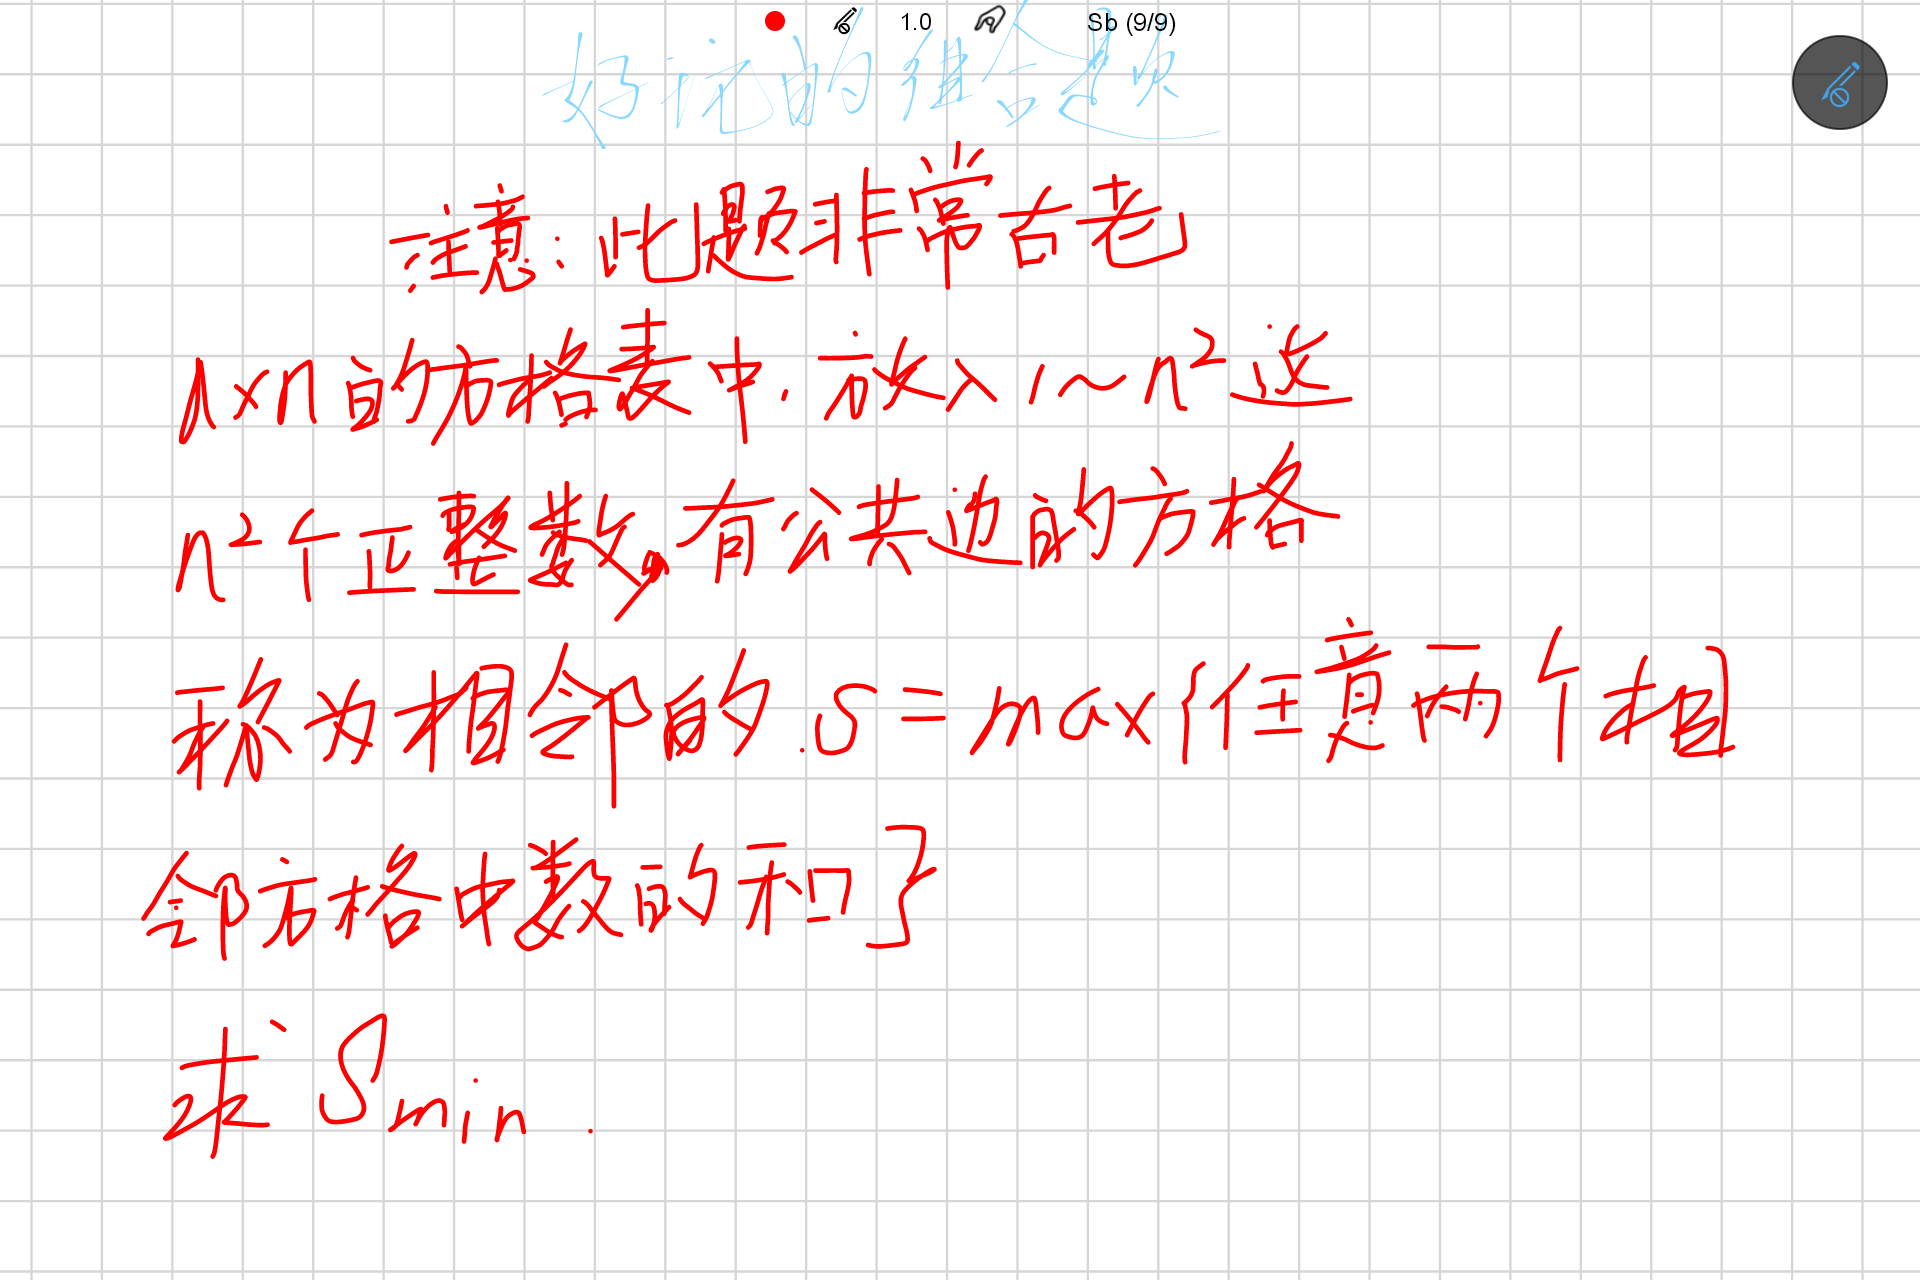 1.0 Sb (9/9)
好玩的组合题
注意:此题非常古老
n×n的方格表中.放入1~n²这
n²个正整数,有公共边的方格
称为相邻的.S=max{任意两个相
邻方格中数的和}
求Smin.